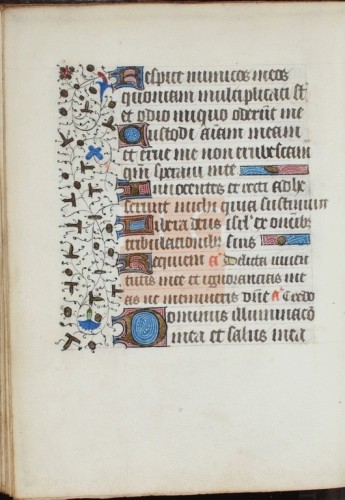 Respice inimicos meos
quoniam multiplicati st
et odio iniquo oderunt me
Custodi aiam meam
et erue me non erubescam
qm speravi in te
Innocentes et recti adhe
serunt michi quia sustinui te
Libera deus isrl' ex omnibz
tribulationibz suis
Requiem a Delicta iuven
tutis mee et ignorancias me
as ne memineris dne a Credo
Dominus illuminacio
mea et salus mea